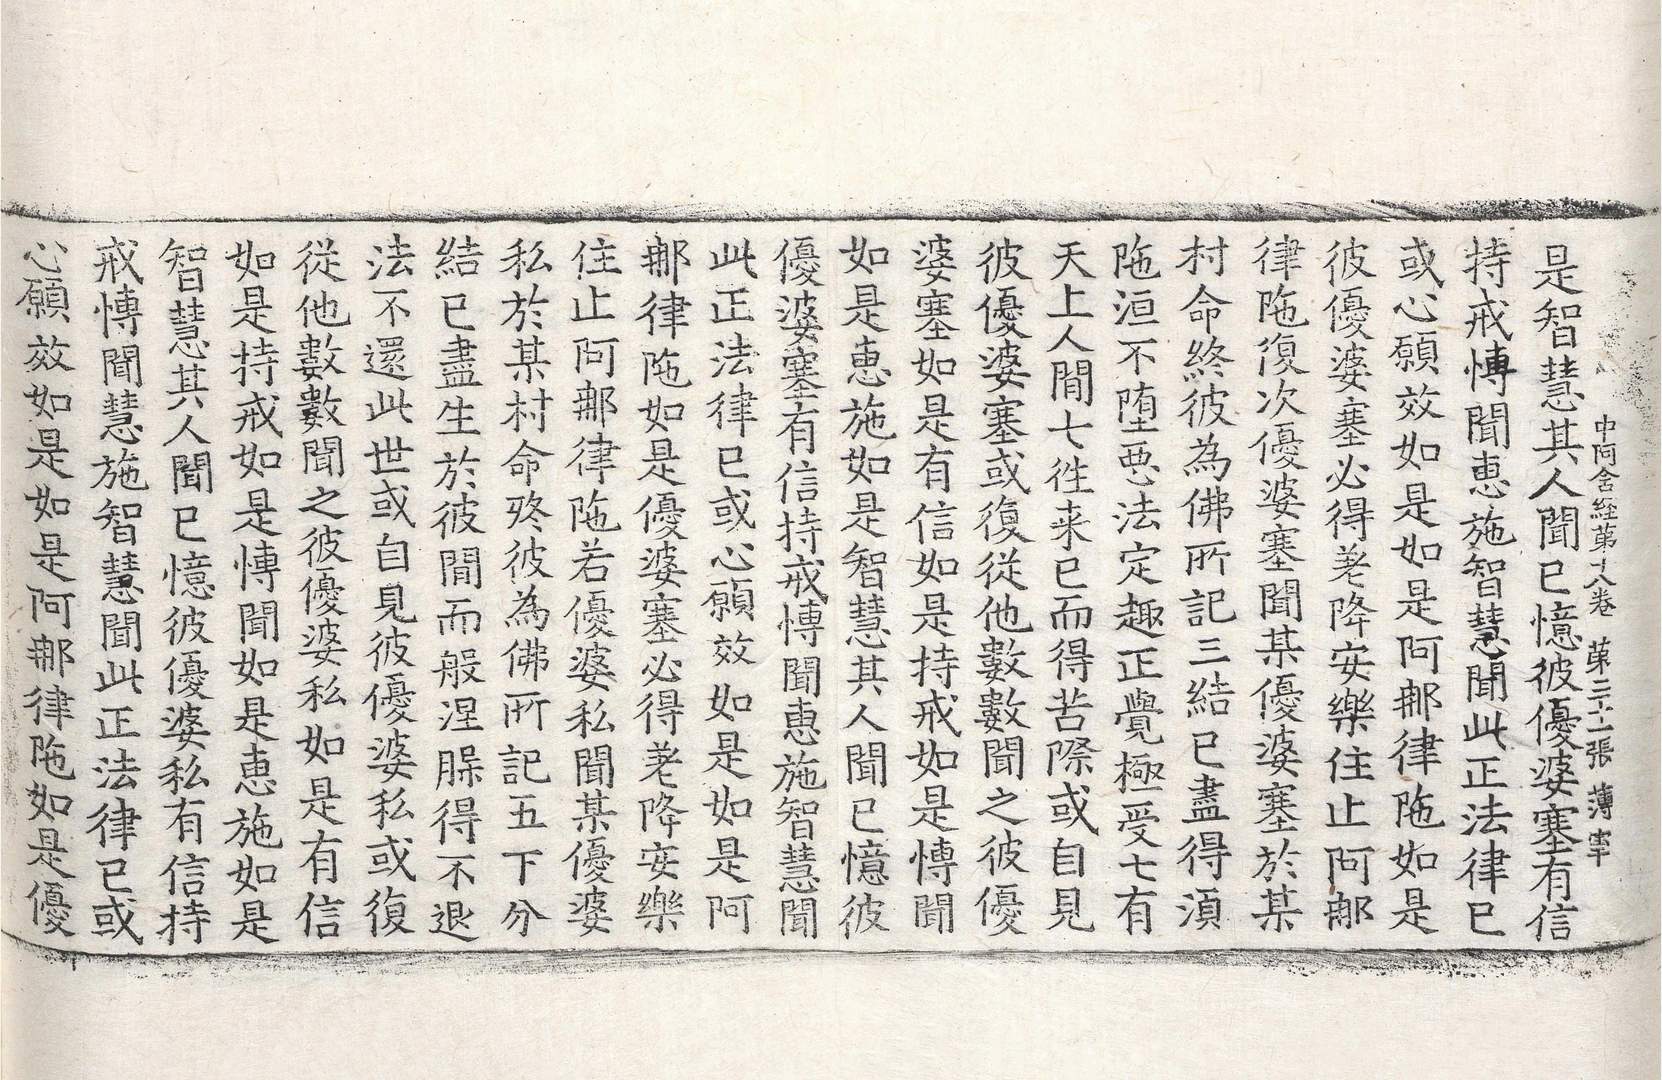 中阿含経第十八卷 第二十二張 薄牢
是智慧其人聞已憶彼優婆塞有信
持戒愽聞恵施智慧聞此正法律已
或心願效如是如是阿郍律陁如是
彼優婆塞必得差降安樂住止阿郍
律陁復次優婆塞聞某優婆塞於某
村命終彼為佛所記三結已盡得湏
陁洹不堕惡法定趣正覺極受七有
天上人間七徃来已而得苦際或自見
彼優婆塞或復從他數數聞之彼優
婆塞如是有信如是持戒如是愽聞
如是恵施如是智慧其人聞已憶彼
優婆塞有信持戒愽聞恵施智慧聞
此正法律已或心願效如是如是阿
郍律陁如是優婆塞必得差降安樂
住止阿郍律陁若優婆私聞某優婆
私於某村命終彼為佛所記五下分
結已盡生於彼間而般涅槃得不退
法不還此世或自見彼優婆私或復
從他數數聞之彼優婆私如是有信
如是持戒如是愽聞如是恵施如是
智慧其人聞已憶彼優婆私有信持
戒愽聞慧施智慧聞此正法律已或
心願效如是如是阿郍律陁如是優